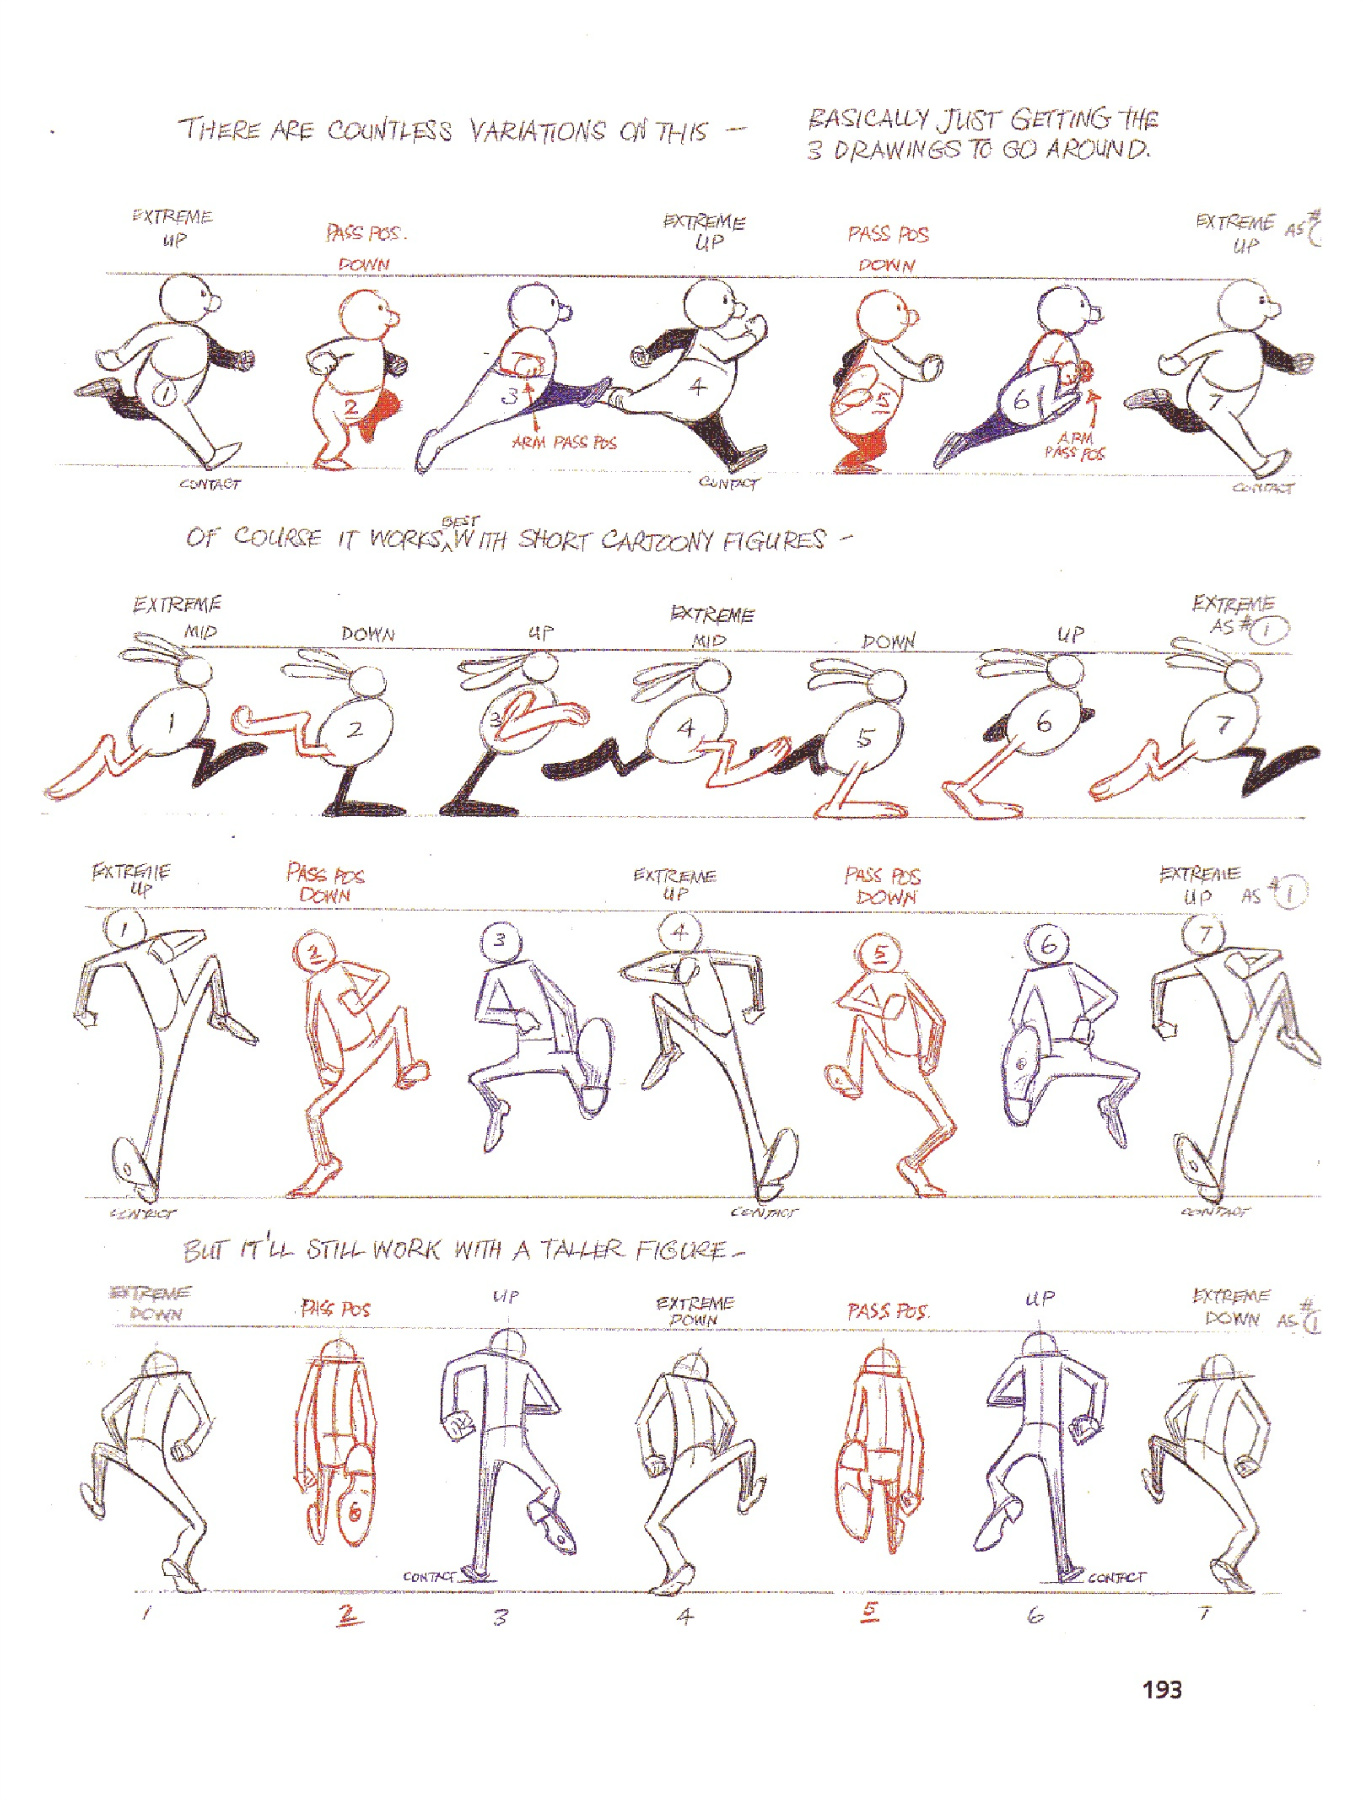 THERE ARE COUNTLESS VARIATIONS ON THIS — BASICALLY JUST GETTING THE
3 DRAWINGS TO GO AROUND.
EXTREME
UP
PASS POS.
DOWN
EXTREME
UP
PASS POS
DOWN
EXTREME
UP
AS #
1
2
3
4
5
6
7
ARM PASS POS
ARM
PASS POS
CONTACT
CONTACT
CONTACT
OF COURSE IT WORKS BEST WITH SHORT CARTOONY FIGURES —
EXTREME
MID
DOWN
UP
EXTREME
MID
DOWN
UP
EXTREME
AS # 1
1
2
3
4
5
6
7
EXTREME
UP
PASS POS
DOWN
EXTREME
UP
PASS POS
DOWN
EXTREME
UP AS # 1
1
2
3
4
5
6
7
CONTACT
CONTACT
CONTACT
BUT IT'LL STILL WORK WITH A TALLER FIGURE —
EXTREME
DOWN
PASS POS
UP
EXTREME
DOWN
PASS POS.
UP
EXTREME
DOWN AS # 1
CONTACT
CONTACT
1 2 3 4 5 6 7
193